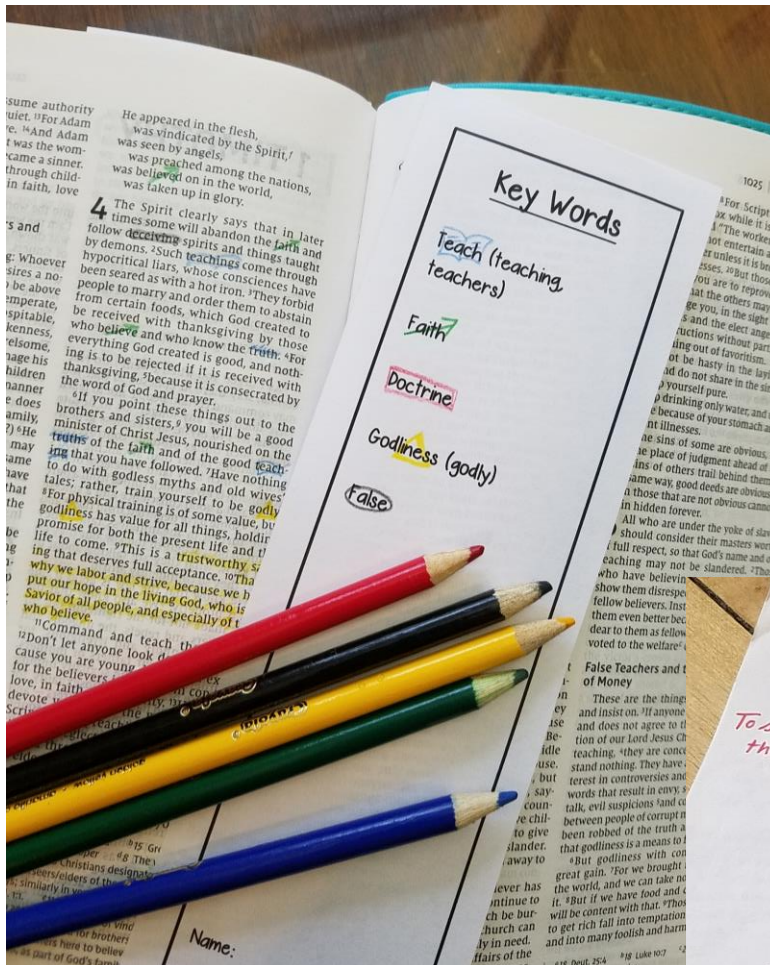 ssume authority
uiet. ¹³For Adam
e. ¹⁴And Adam
t was the wom-
came a sinner.
through child-
in faith, love
rs and
g: Whoever
sires a no-
o be above
emperate,
spitable,
kenness,
relsome,
nage his
hildren
manner
e does
amily,
?) ⁶He
may
same
have
that
the
He appeared in the flesh,
was vindicated by the Spirit,ᶠ
was seen by angels,
was preached among the nations,
was believed on in the world,
was taken up in glory.
4 The Spirit clearly says that in later
times some will abandon the faith and
follow deceiving spirits and things taught
by demons. ²Such teachings come through
hypocritical liars, whose consciences have
been seared as with a hot iron. ³They forbid
people to marry and order them to abstain
from certain foods, which God created to
be received with thanksgiving by those
who believe and who know the truth. ⁴For
everything God created is good, and noth-
ing is to be rejected if it is received with
thanksgiving, ⁵because it is consecrated by
the word of God and prayer.
⁶If you point these things out to the
brothers and sisters,ᵍ you will be a good
minister of Christ Jesus, nourished on the
truths of the faith and of the good teach-
ing that you have followed. ⁷Have nothing
to do with godless myths and old wives'
tales; rather, train yourself to be godly.
⁸For physical training is of some value, bu
godliness has value for all things, holdin
promise for both the present life and th
life to come. ⁹This is a trustworthy sa
ing that deserves full acceptance. ¹⁰Tha
why we labor and strive, because we h
put our hope in the living God, who is
Savior of all people, and especially of t
who believe.
¹¹Command and teach th
¹²Don't let anyone look d
cause you are young
for the believers
love, in faith
devote
Key Words
Teach (teaching,
teachers)
Faith
Doctrine
Godliness (godly)
False
Name:
Crayola
1025
¹⁸For Script
ox while it is
"The worker
ot entertain a
er unless it is br
sses. ²⁰But those
you are to reprov
at the others may
ge you, in the sight
s and the elect ange
ructions without part
ing out of favoritism.
ot be hasty in the layi
nd do not share in the sin
p yourself pure.
drinking only water, and u
because of your stomach a
nt illnesses.
he sins of some are obvious,
e place of judgment ahead of
ins of others trail behind them
ame way, good deeds are obvious
n those that are not obvious canno
in hidden forever.
All who are under the yoke of slav
should consider their masters wor
full respect, so that God's name and o
eaching may not be slandered. ²Tho
who have believin
show them disrespe
fellow believers. Inst
them even better bec
dear to them as fellow
voted to the welfare
False Teachers and t
of Money
These are the thing
and insist on. ³If anyone
and does not agree to t
tion of our Lord Jesus Ch
teaching, ⁴they are conce
stand nothing. They have
terest in controversies and
words that result in envy, s
talk, evil suspicions ⁵and c
between people of corrupt m
been robbed of the truth a
that godliness is a means to f
⁶But godliness with con
great gain. ⁷For we brought
the world, and we can take no
it. ⁸But if we have food and c
will be content with that. ⁹Thos
to get rich fall into temptation
and into many foolish and harm
Deut. 25:4 ᵇ18 Luke 10:7
To s
th